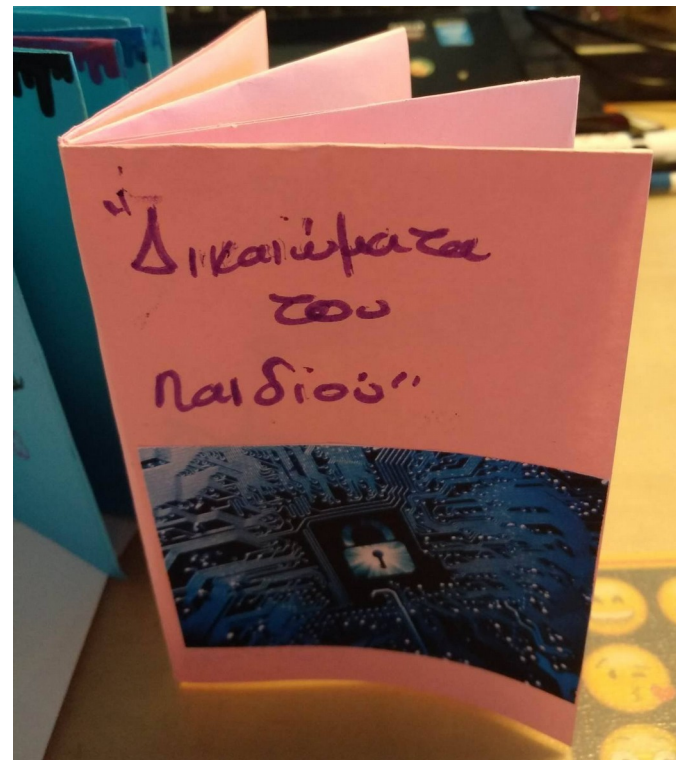 "Δικαιώματα
του
παιδιού"